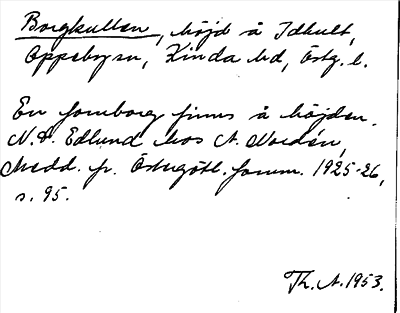 Borgkullen, höjd å Idhult,
Oppebysn, Kinda hd, Östg. l.
En fornborg finns å höjden.
N. A. Edlund hos A. Nordén,
Medd. fr. Östergötl. fornm. 1925-26,
s. 95.
Th. A. 1953.